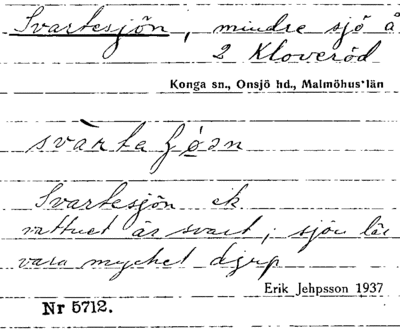 Svartesjön, mindre sjö å
2 Kloveröd
Konga sn., Onsjö hd., Malmöhus län
Svartesjön ek
vattnet är svart, sjön lär
vara mycket djup
Erik Jehpsson 1937
Nr 5712.